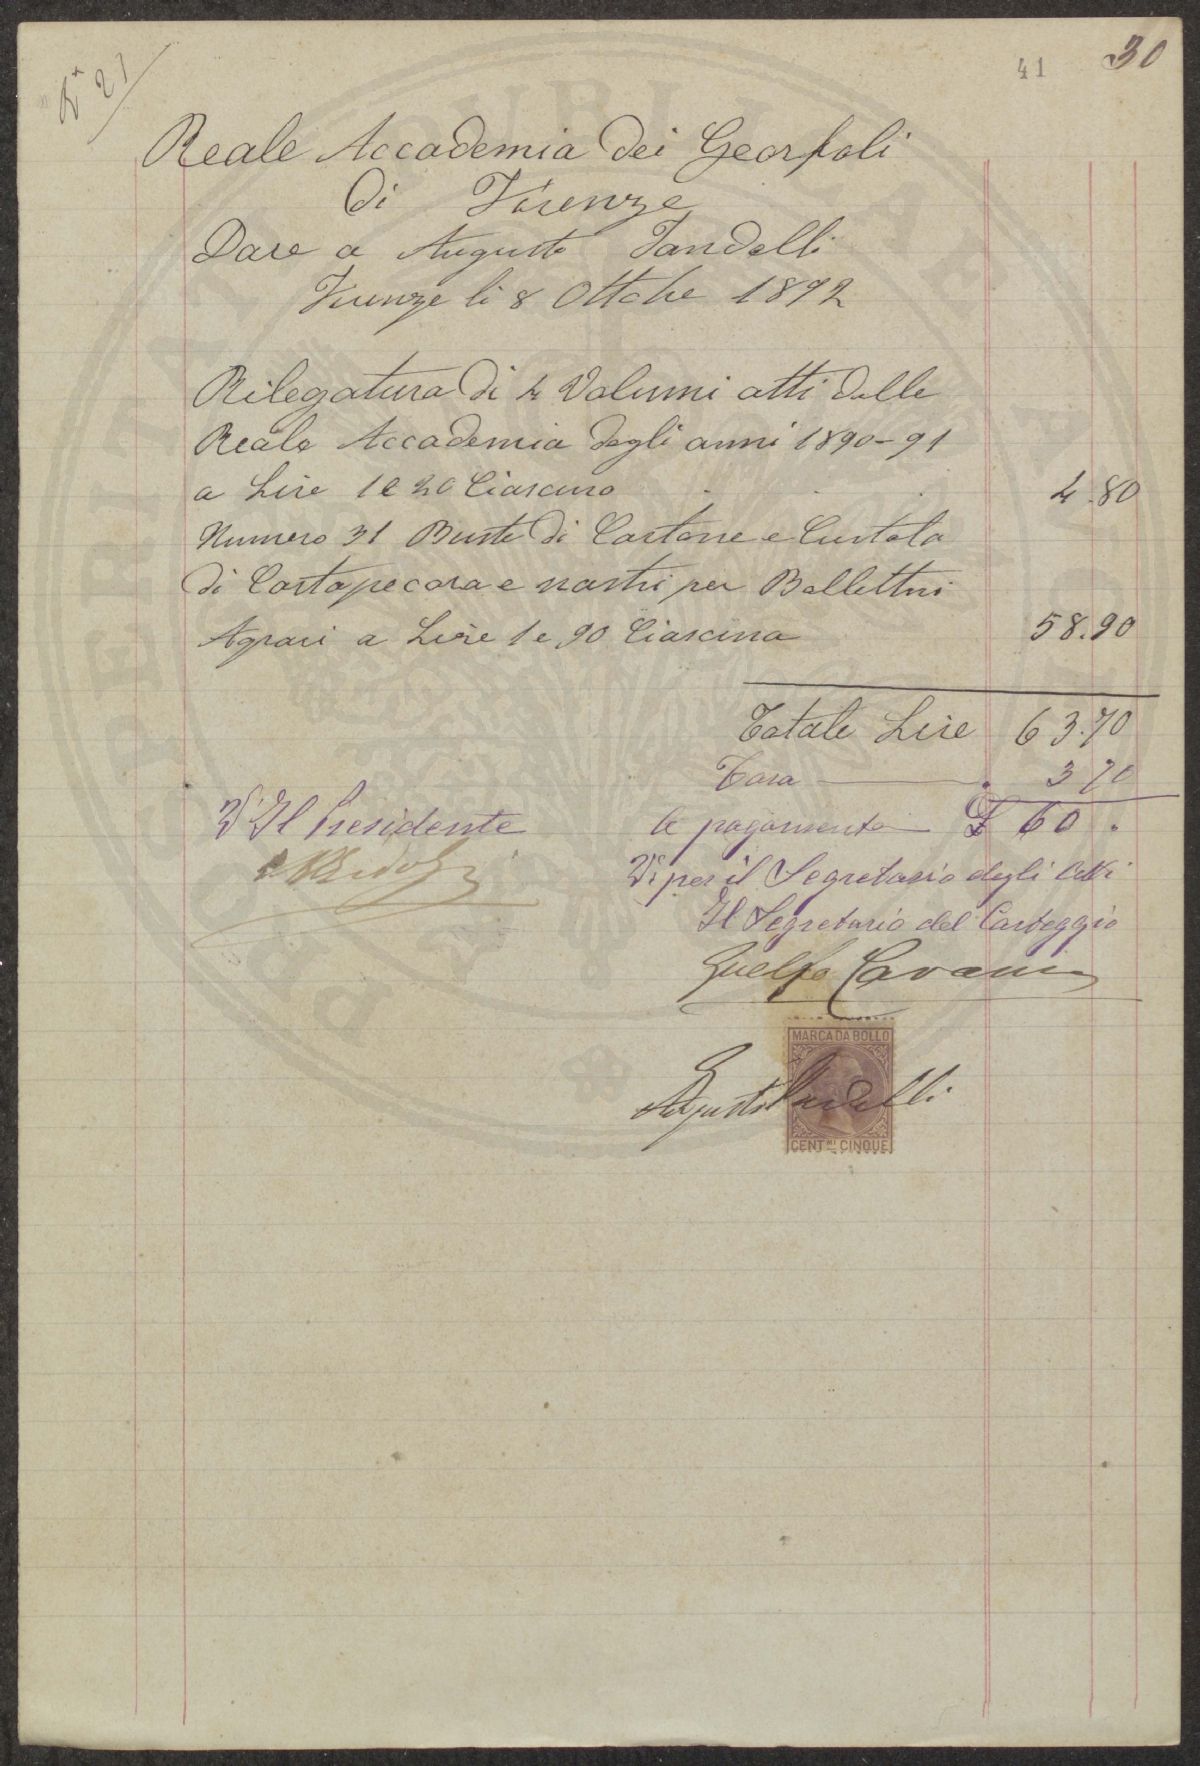 N° 21
41
30
Reale Accademia dei Georfoli
di Firenze
Dare a Augusto Tandelli
Firenze li 8 Ottobre 1892
Rilegatura di 4 Volumi atti delle
Reale Accademia degli anni 1890-91
a Lire 1 e 20 Ciascuno . . . 4.80
Numero 31 Buste di Cartone e Custola
di Cartapecora e nastri per Bollettini
Agrari a Lire 1 e 90 Ciascuna 58.90
Totale Lire 63.70
Tara 3 70
V° Il Presidente
Si pagamento £ 60 .
V° per il Segretario degli Atti
Il Segretario del Carteggio
Guelfo Cavani
MARCA DA BOLLO
Augusto Tandelli
CENT.MI CINQUE